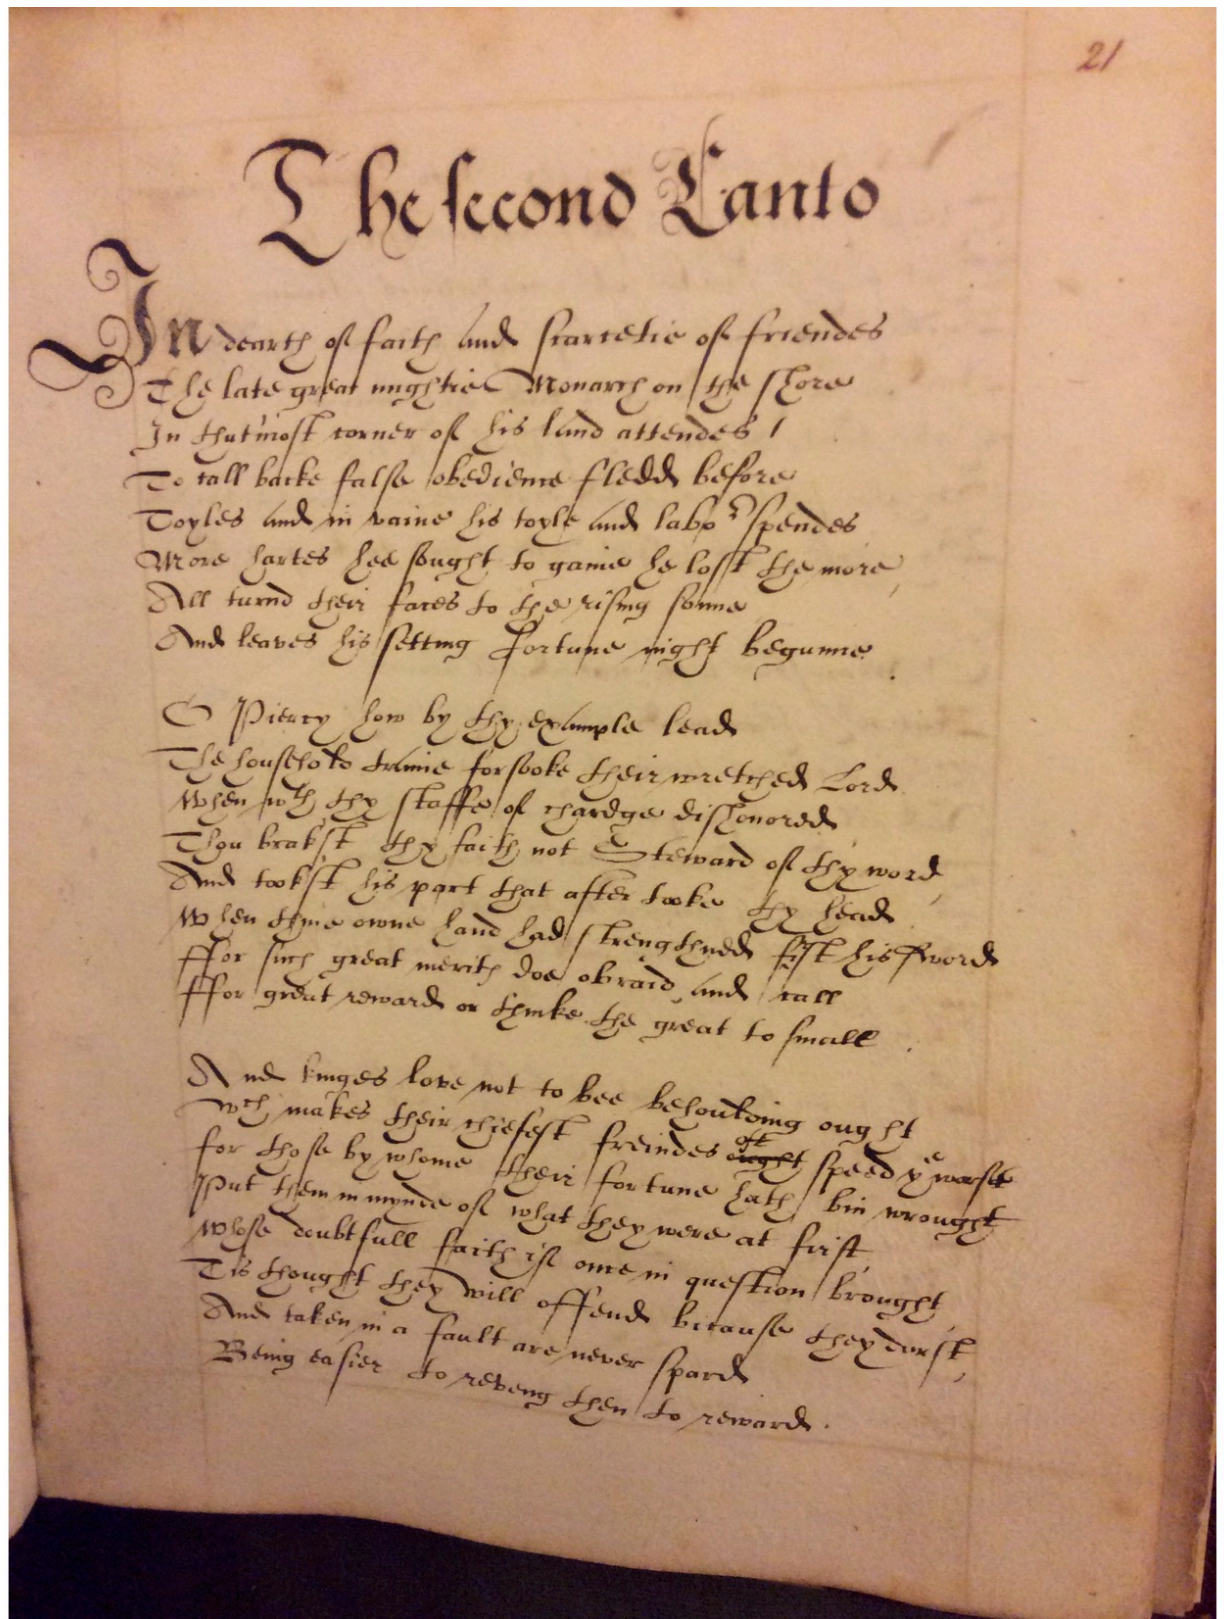 21
The second Canto
In dearth of faith and scarcetie of friendes
The late great mightie Monarch on the shore
In thutmost corner of his land attendes
To call backe false obedience fledd before
Toyles and in vaine his toyle and labor spendes
More hartes hee sought to gaine he lost the more,
All turnd their faces to the rising sonne
And leaves his setting fortune night begunne.
O Piercy how by thy example lead
The household traine forsooke their wretched Lord
When wth thy staffe of chardge dishonored
Thou brakst thy faith not Steward of thy word,
And tookst his part that after tooke thy head
When thine owne hand had strengthned fist his sword
ffor such great merits doe obraid and call
ffor great reward or thinke the great to small.
And kinges love not to bee behoulding ought
Wch makes their chiefest freindes oft speed ye worst
for those by whome their fortune hath bin wrought
Put them in mynde of what they were at first
Whose doubtfull faith if once in question brought
Tis thought they will offend bicause they durst,
And taken in a fault are never spard
Being easier to reveng then to reward.